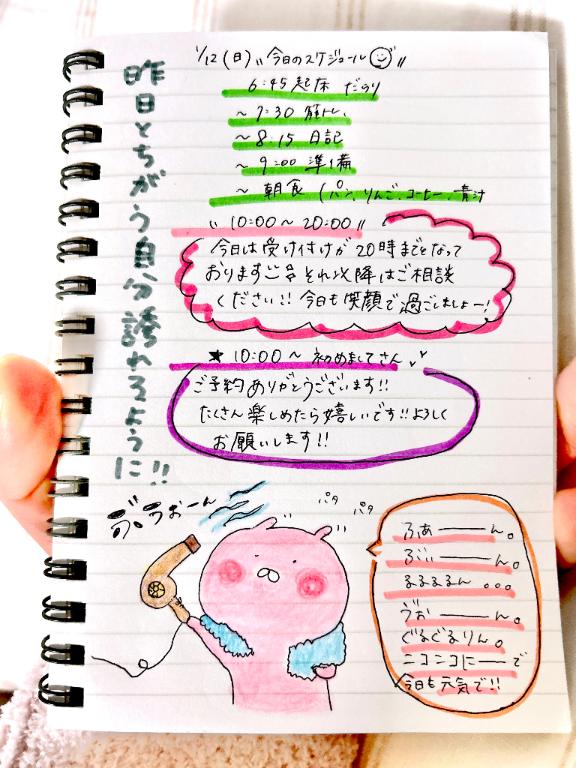 1/12(日)〃今日のスケジュール〃
6:45 起床 だらり
~7:30 筋トレ、
~8:15 日記
~9:00 準備
~朝食(パン、りんご、コーヒー、青汁
〃10:00~20:00〃
今日は受け付けが20時までとなって
おります それ以降はご相談
ください!!今日も笑顔で過ごしましょー!
★10:00~初めましてさん
ご予約ありがとうございます!!
たくさん楽しめたら嬉しいです!!よろしく
お願いします!!
昨日とちがう自分誘れるように!!
ぶぅおーん
パタ
パタ
ふぁーーん。
ぶぃーーん。
るるるるん。。。
ゔぉーーん。
ぐるぐるりん。
ニコンコにーーで
今日も元気で!!